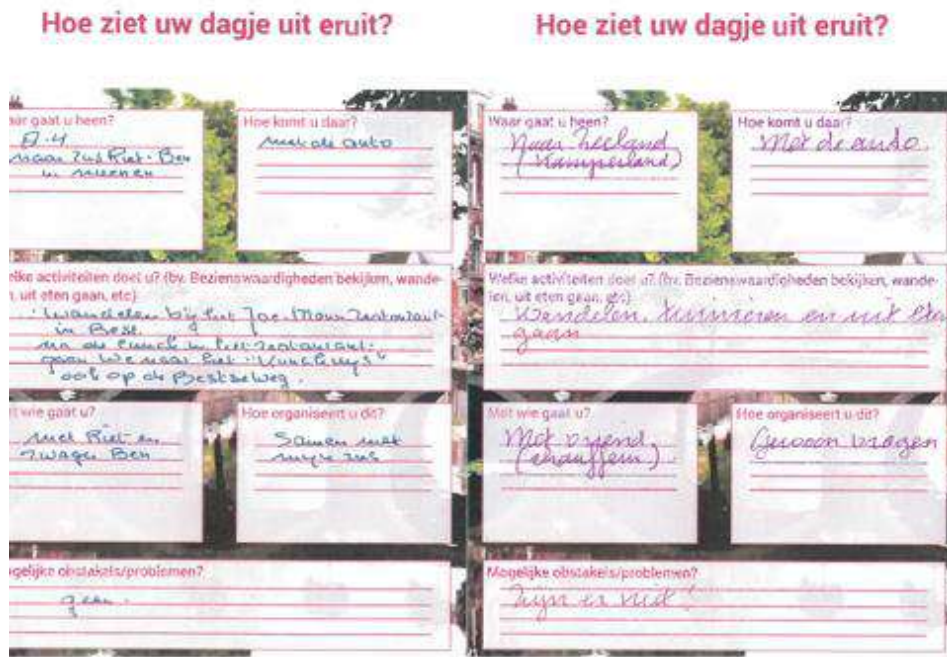 Hoe ziet uw dagje uit eruit?
aar gaat u heen?
8-4
naar zus Riet - Ben
in
Hoe komt u daar?
met de auto
elke activiteiten doet u? (bv. Bezienswaardigheden bekijken, wande-
n, uit eten gaan, etc)
wandelen bij het Joe Mann Restaurant
in Best.
na de lunch in het restaurant.
gaan we naar het
ook op de Bestseweg.
t wie gaat u?
met Riet en
zwager Ben
Hoe organiseert u dit?
Samen met
mijn zus
gelijke obstakels/problemen?
geen.
Hoe ziet uw dagje uit eruit?
Waar gaat u heen?
Naar Zeeland
(Kamperland)
Hoe komt u daar?
Met de auto.
Welke activiteiten doet u? (bv. Bezienswaardigheden bekijken, wande-
len, uit eten gaan, etc)
Wandelen, tuinieren en uit eten
gaan
Met wie gaat u?
Met vriend
(chauffeur).
Hoe organiseert u dit?
Gewoon vragen
Mogelijke obstakels/problemen?
Zijn er niet!